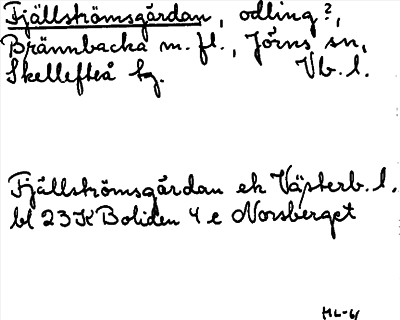 Fjällströmsgårdan, odling?,
Brännbacka m. fl., Jörns sn,
Skellefteå tg. Vb. l.
Fjällströmsgårdan ek Västerb. l.
bl 23K Boliden 4 e Norsberget